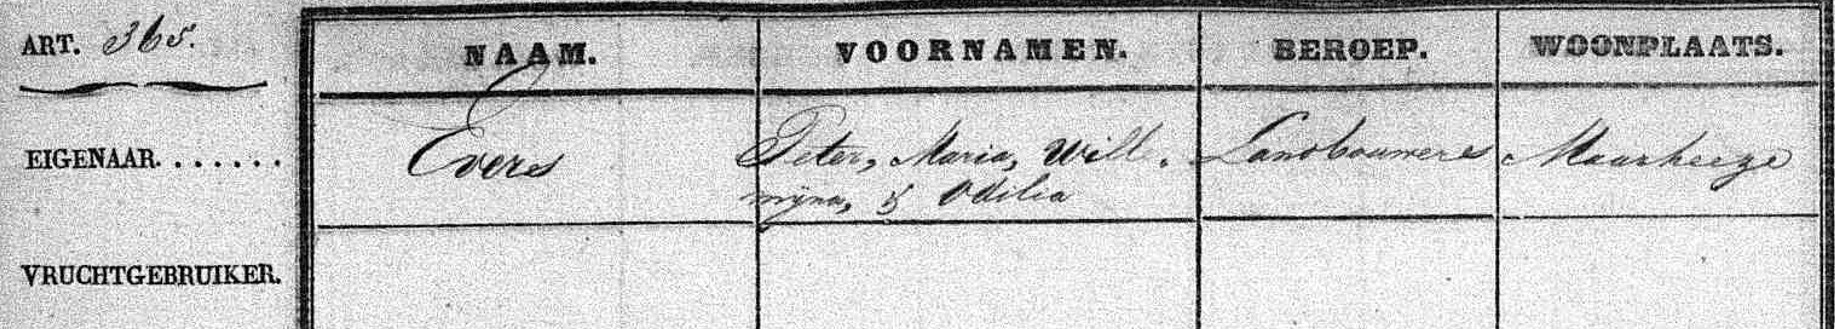 ART. 365.
NAAM. VOORNAMEN. BEROEP. WOONPLAATS.
EIGENAAR. . . . . . . Evers Peter, Maria, Wille- Landbouwers Maarheeze
mijna, & Odilia
VRUCHTGEBRUIKER.